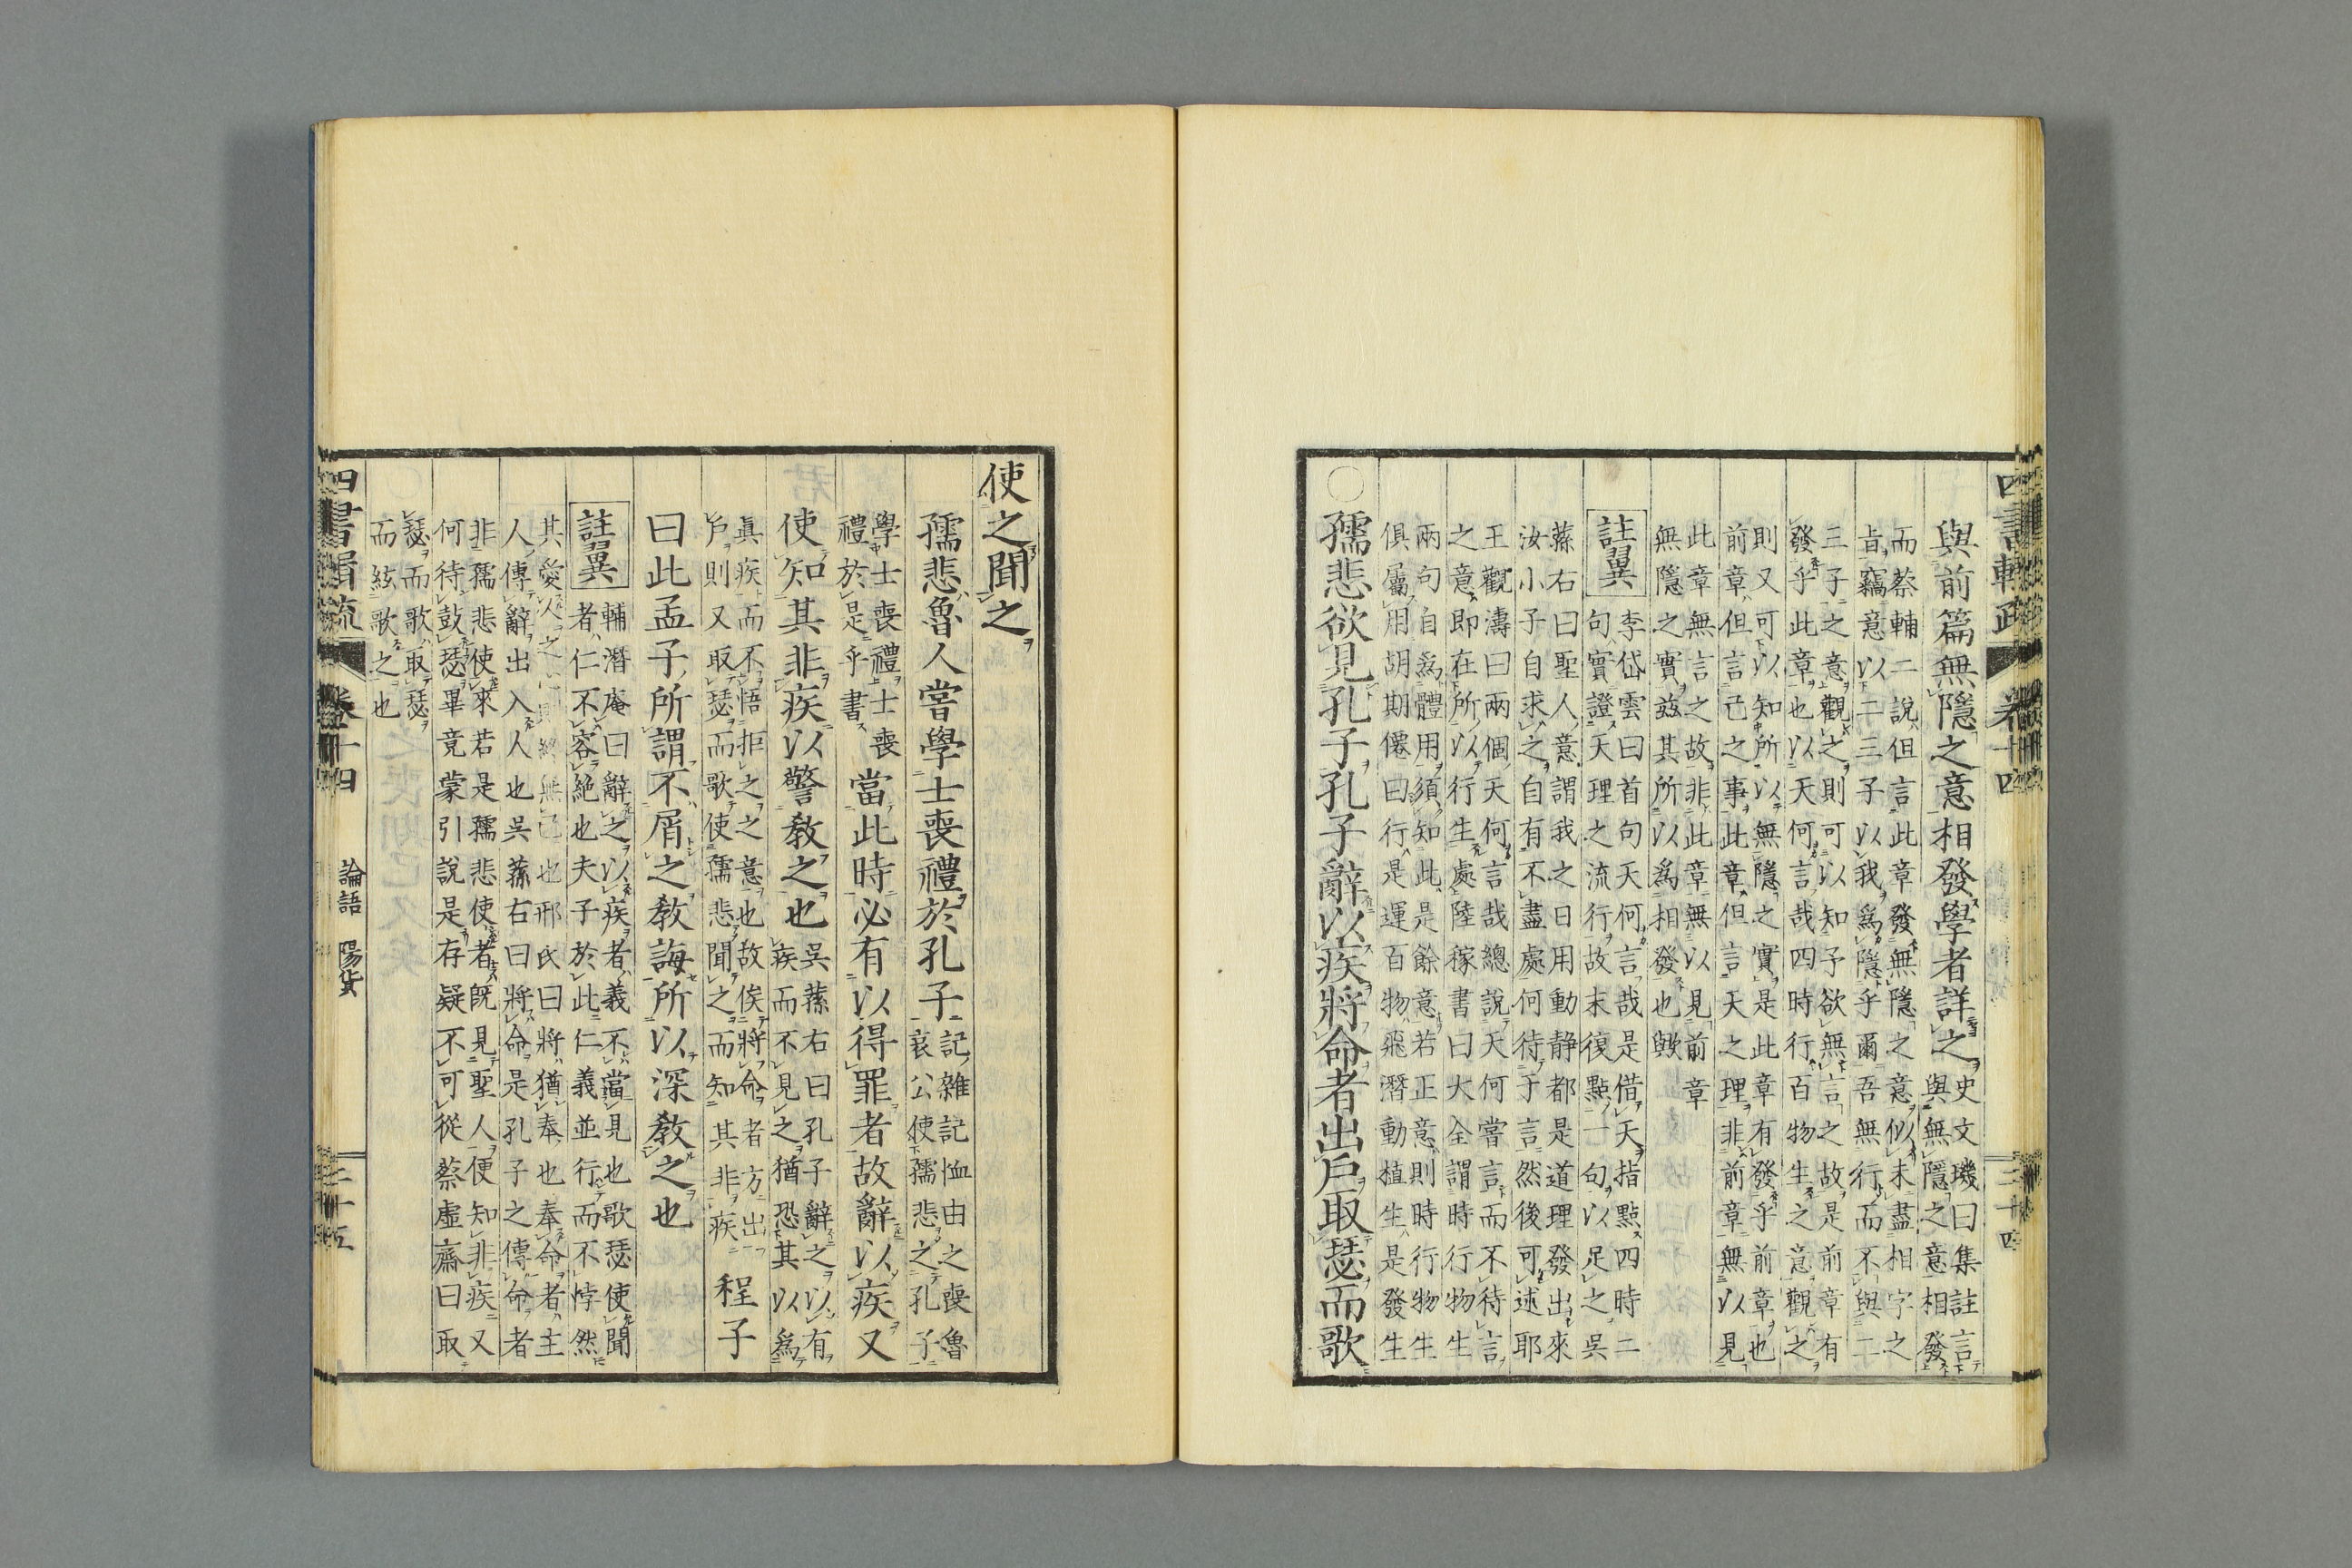 四書輯疏 卷十四 三十四
與前篇無隱之意相發學者詳之史文璣曰集註言
與無隱之意相發
而蔡輔二說但言此章發無隱之意似未盡相字之
旨竊意以二三子以我爲隱乎爾吾無行而不與二
三子之意觀之則可以知予欲無言之故是前章有
發乎此章也以天何言哉四時行百物生之意觀之
則又可以知所以無隱之實是此章有發乎前章也
前章但言己之事此章但言天之理非前章無以見
此章無言之故非此章無以見前章
無隱之實茲其所以爲相發也歟
註翼
李岱雲曰首句天何言哉是借天指點四時二
句實證天理之流行故末復點一句以足之吳
蓀右曰聖人意謂我之日用動靜都是道理發出來
汝小子自求之自有不盡處何待于言然後可述耶
王觀濤曰兩個天何言哉總說天何嘗言而不待言
之意即在所以行生處陸稼書曰大全謂時行物生
兩句自爲體用須知此是餘意若正意則時行物生
俱屬用胡期僊曰行是運百物飛潛動植生是發生
○孺悲欲見孔子孔子辭以疾將命者出戶取瑟而歌
使之聞之
孺悲魯人嘗學士喪禮於孔子記雜記恤由之喪魯
哀公使孺悲之孔子
學士喪禮士喪
禮於是乎書當此時必有以得罪者故辭以疾又
使知其非疾以警敎之也吳蓀右曰孔子辭之以有
疾而不見之猶恐其以爲
眞疾而不悟拒之之意也故俟將命者方出
戶則又取瑟而歌使孺悲聞之而知其非疾程子
曰此孟子所謂不屑之敎誨所以深敎之也
註翼
輔潛庵曰辭之以疾者義不當見也歌瑟使聞
者仁不容絶也夫子於此仁義並行而不悖然
其愛人之心則終無已也邢氏曰將猶奉也奉命者主
人傳辭出入人也吳蓀右曰將命是孔子之傳命者
非孺悲使來若是孺悲使者旣見聖人便知非疾又
何待鼓瑟畢竟蒙引說是存疑不可從蔡虛齋曰取
瑟而歌取瑟
而絃歌之也
四書輯疏 卷十四 論語 陽貨 三十五